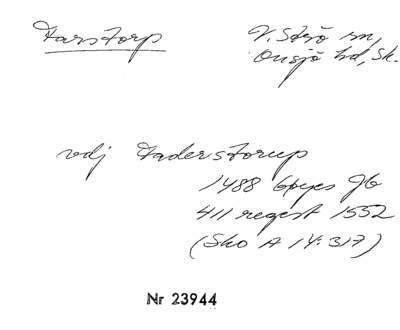 Farstorp
V. Strö sn,
Onsjö hd, Sk.
vdj Faderstorup
1488 Gpges Jb
411 regest 1552
(Sko A 14:317)
Nr 23944